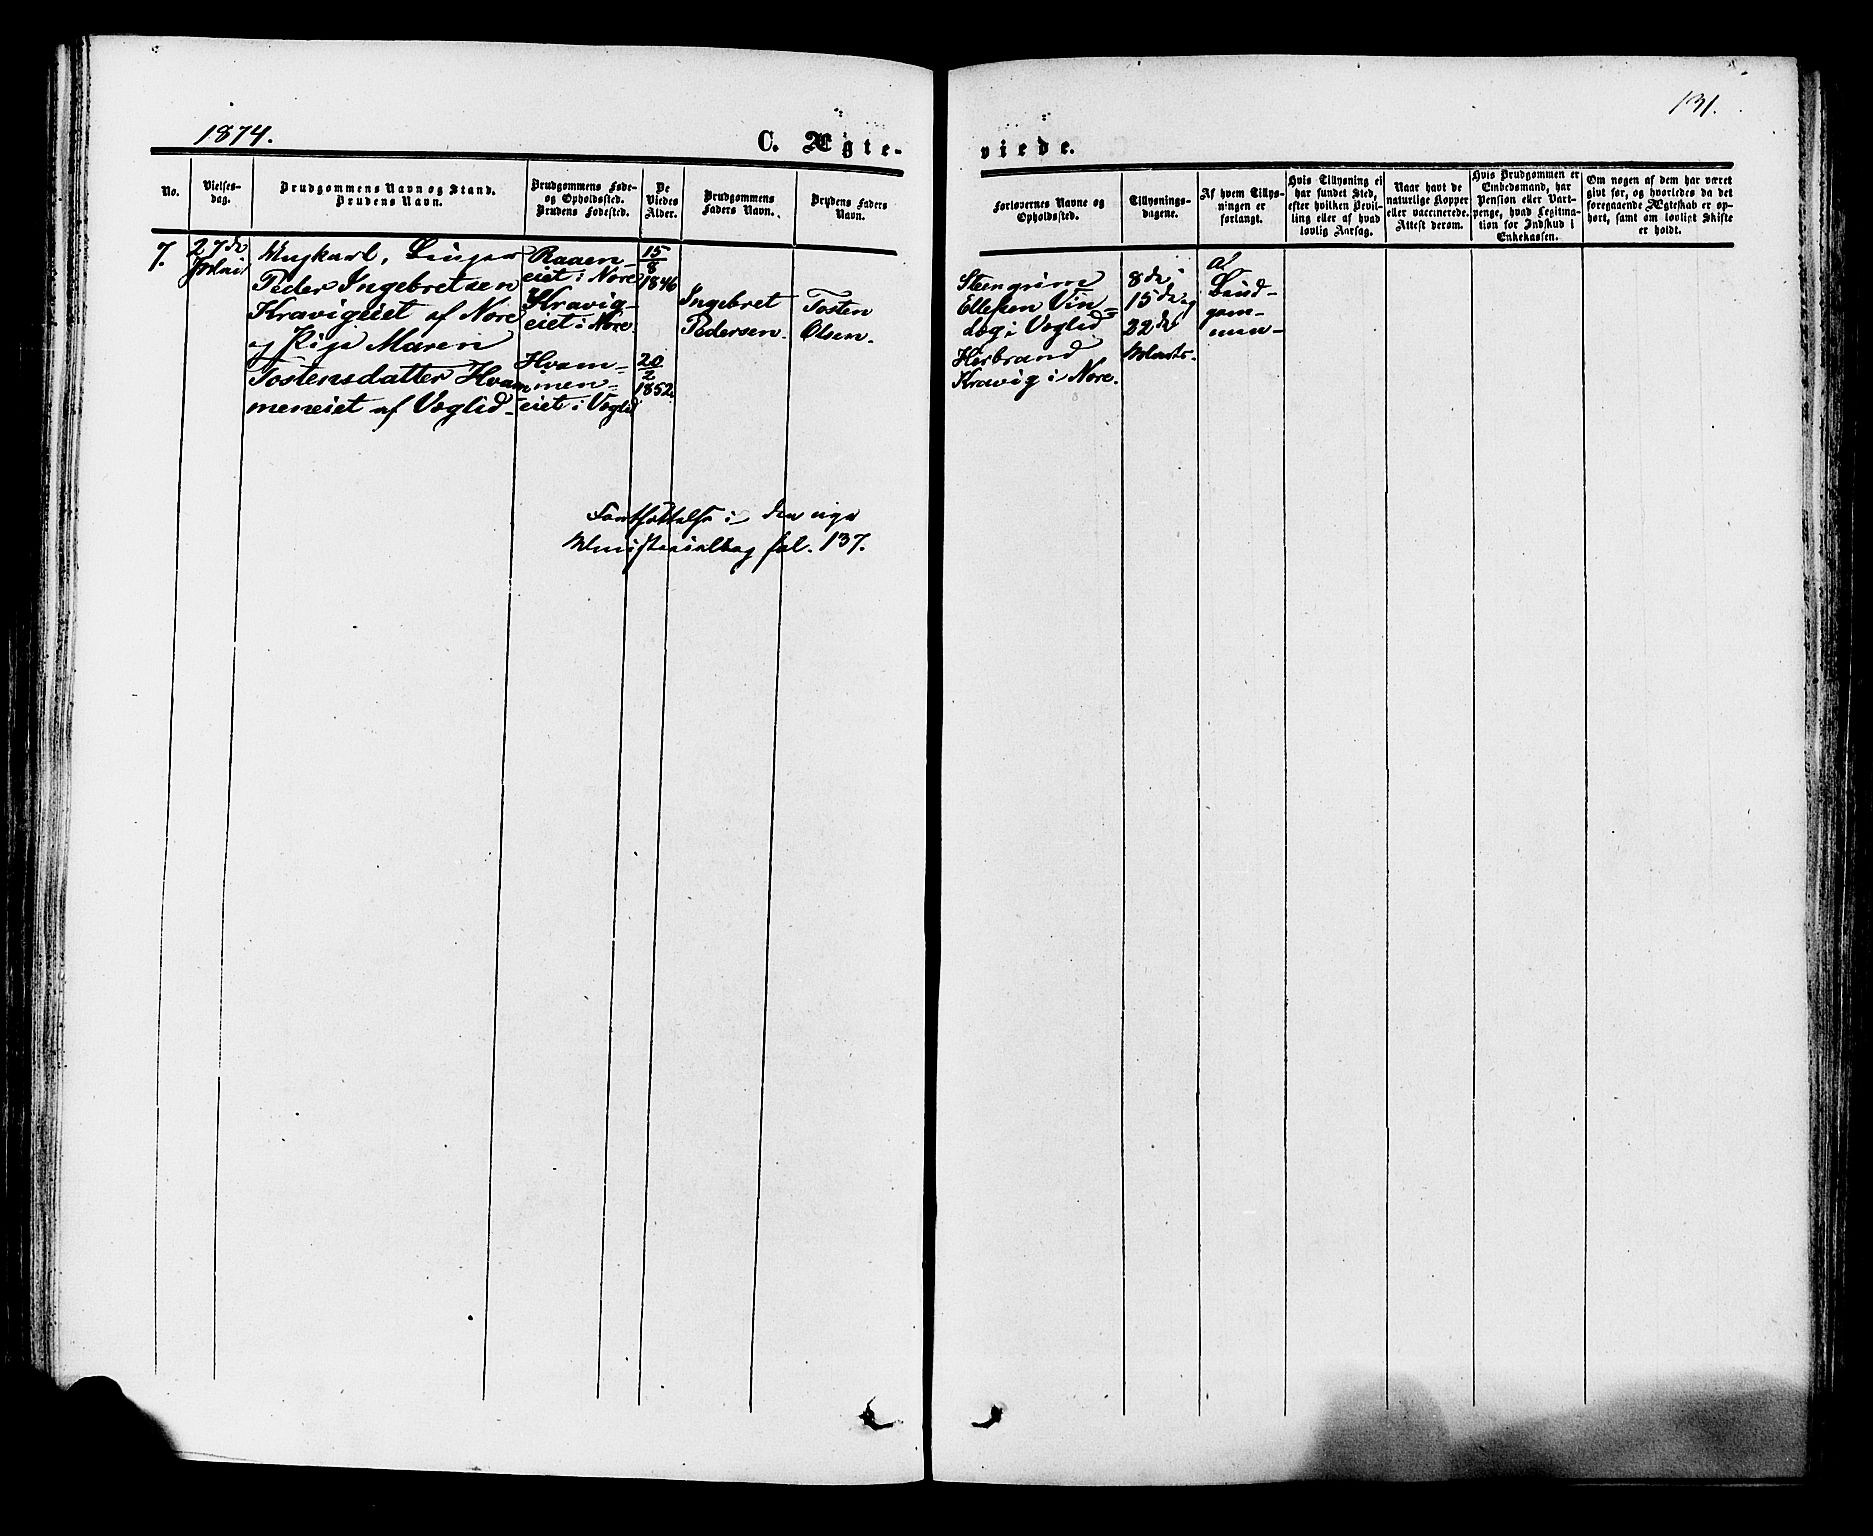 131.
1874.
C. Ægte-
viede.
No.
Vielses-
dag.
Brudgommens Navn og Stand.
Brudens Navn.
Brudgommens Føde-
og Opholdssted.
Brudens Fødested.
De
Viedes
Alder.
Brudgommens
Faders Navn.
Brudens Faders
Navn.
Forlovernes Navne og
Opholdssted.
Tillysnings-
dagene.
Af hvem Tillys-
ningen er
forlangt.
Hvis Tillysning ei
har fundet Sted,
efter hvilken Bevil-
ling eller af hvad
lovlig Aarsag.
Naar havt de
naturlige Kopper
eller vaccinerede.
Attest derom.
Hvis Brudgommen er
Embedsmand, har
Pension eller Vart-
penge, hvad Legitima-
tion for Indskud i
Enkekassen.
Om nogen af dem har været
gift før, og hvorledes da det
foregaaende Ægteskab er op-
hørt, samt om lovligt Skifte
er holdt.
7.
27de
Mai
Ungkarl,
Peder Ingebretsen
Kravigeiet af Nore
og Pige Maren
Tostensdatter Hvam-
meneiet af Veglid
Raaen-
eiet i Nore
Kravig-
eiet i Nore.
Hvam-
men-
eiet i Veglid
15/8
1846
20/2
1852
Ingebret
Pedersen.
Tosten
Olsen.
Steengrim
Ellefsen Vin-
deg i Veglid
Herbrand
Kravig i Nore.
8de,
15de og
22de
Marts.
af
Brud-
gom-
men
Fortsættelse i den nye
Ministerialbog fol. 137.